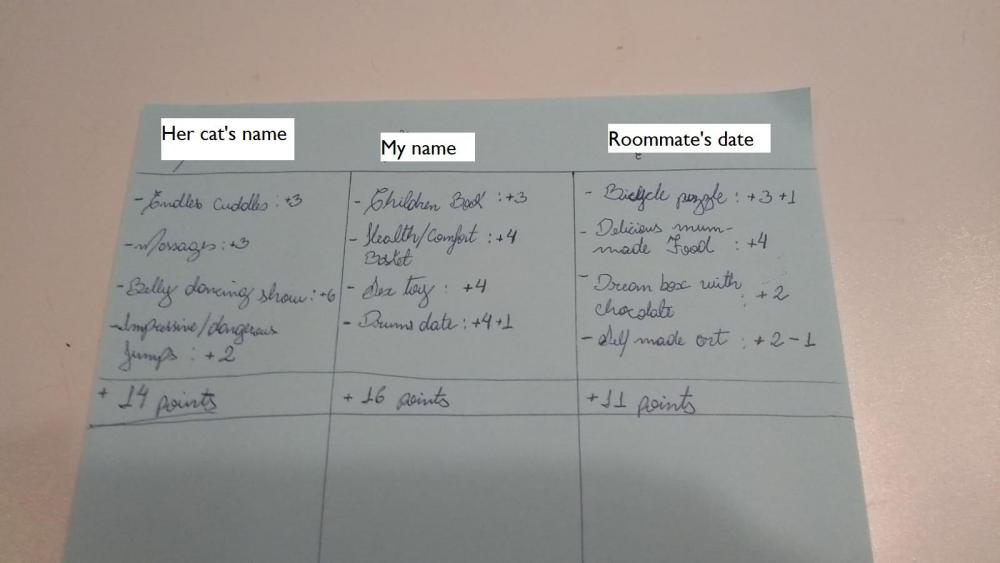 Her cat's name
- Endless cuddles : +3
- Massages : +3
- Belly dancing show : +6
- Impressive/dangerous
Jumps : +2
+ 14 points
My name
- Children Book : +3
- Health/Comfort : +4
Basket
- Sex toy : +4
- Drums date : +4 +1
+ 16 points
Roommate's date
- Bicycle puzzle : +3 +1
- Delicious mum-
made Food : +4
- Dream box with
chocolate : +2
- Self made art : +2 -1
+ 11 points